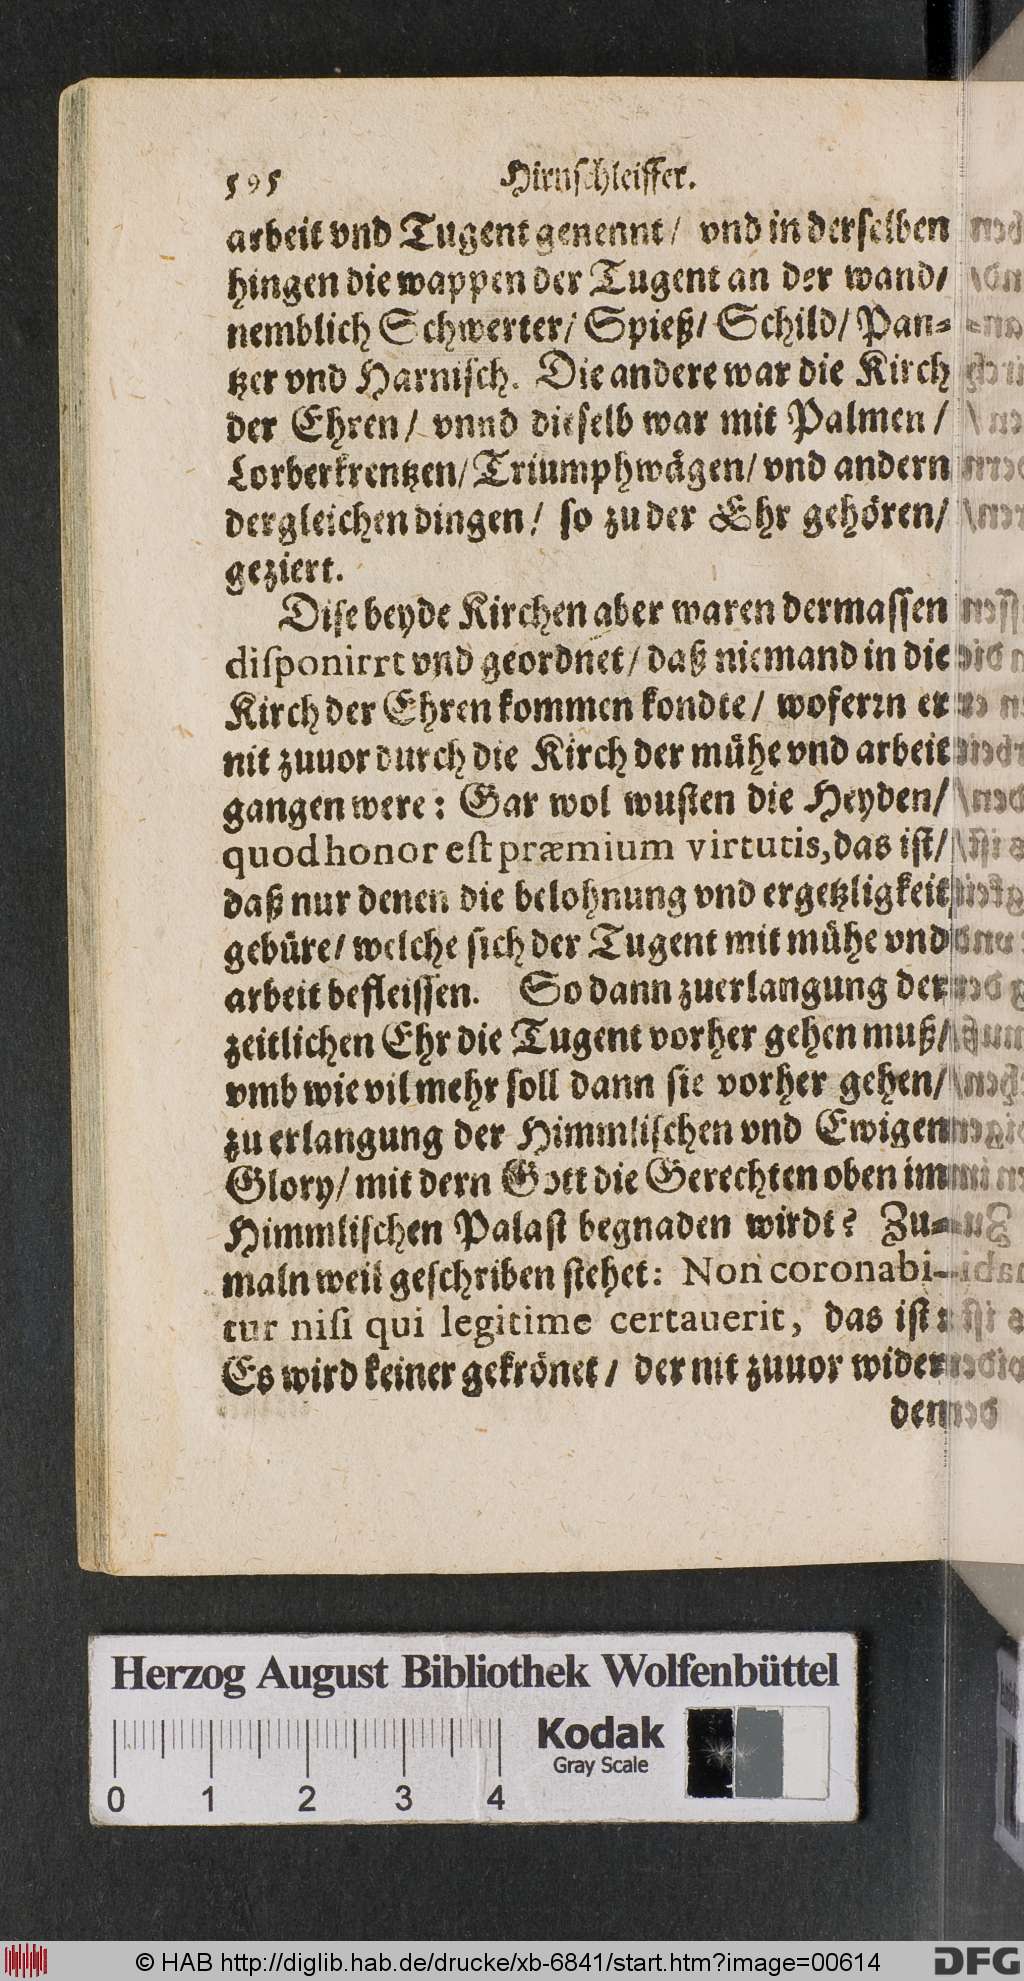 595 Hirnschleiffer.
arbeit vnd Tugent genennt/ vnd in derselben
hingen die wappen der Tugent an der wand/
nemblich Schwerter/ Spieß/ Schild/ Pan-
tzer vnd Harnisch. Die andere war die Kirch
der Ehren/ vnnd dieselb war mit Palmen/
Lorberkrentzen/ Triumphwägen/ vnd andern
dergleichen dingen/ so zu der Ehr gehören/
geziert.
Dise beyde Kirchen aber waren dermassen
disponirrt vnd geordnet/ daß niemand in die
Kirch der Ehren kommen kondte/ woferrn er
nit zuuor durch die Kirch der mühe vnd arbeit
gangen were: Gar wol wusten die Heyden/
quod honor est præmium virtutis, das ist/
daß nur denen die belohnung vnd ergetzligkeit
gebüre/ welche sich der Tugent mit mühe vnd
arbeit befleissen. So dann zuerlangung der
zeitlichen Ehr die Tugent vorher gehen muß/
vmb wie vil mehr soll dann sie vorher gehen/
zu erlangung der Himmlischen vnd Ewigen
Glory/ mit dern Gott die Gerechten oben im
Himmlischen Palast begnaden wirdt? Zu-
maln weil geschriben stehet: Non coronabi-
tur nisi qui legitime certauerit, das ist:
Es wird keiner gekrönet/ der nit zuuor wider
den
Herzog August Bibliothek Wolfenbüttel
Kodak
Gray Scale
0 1 2 3 4
© HAB http://diglib.hab.de/drucke/xb-6841/start.htm?image=00614
DFG